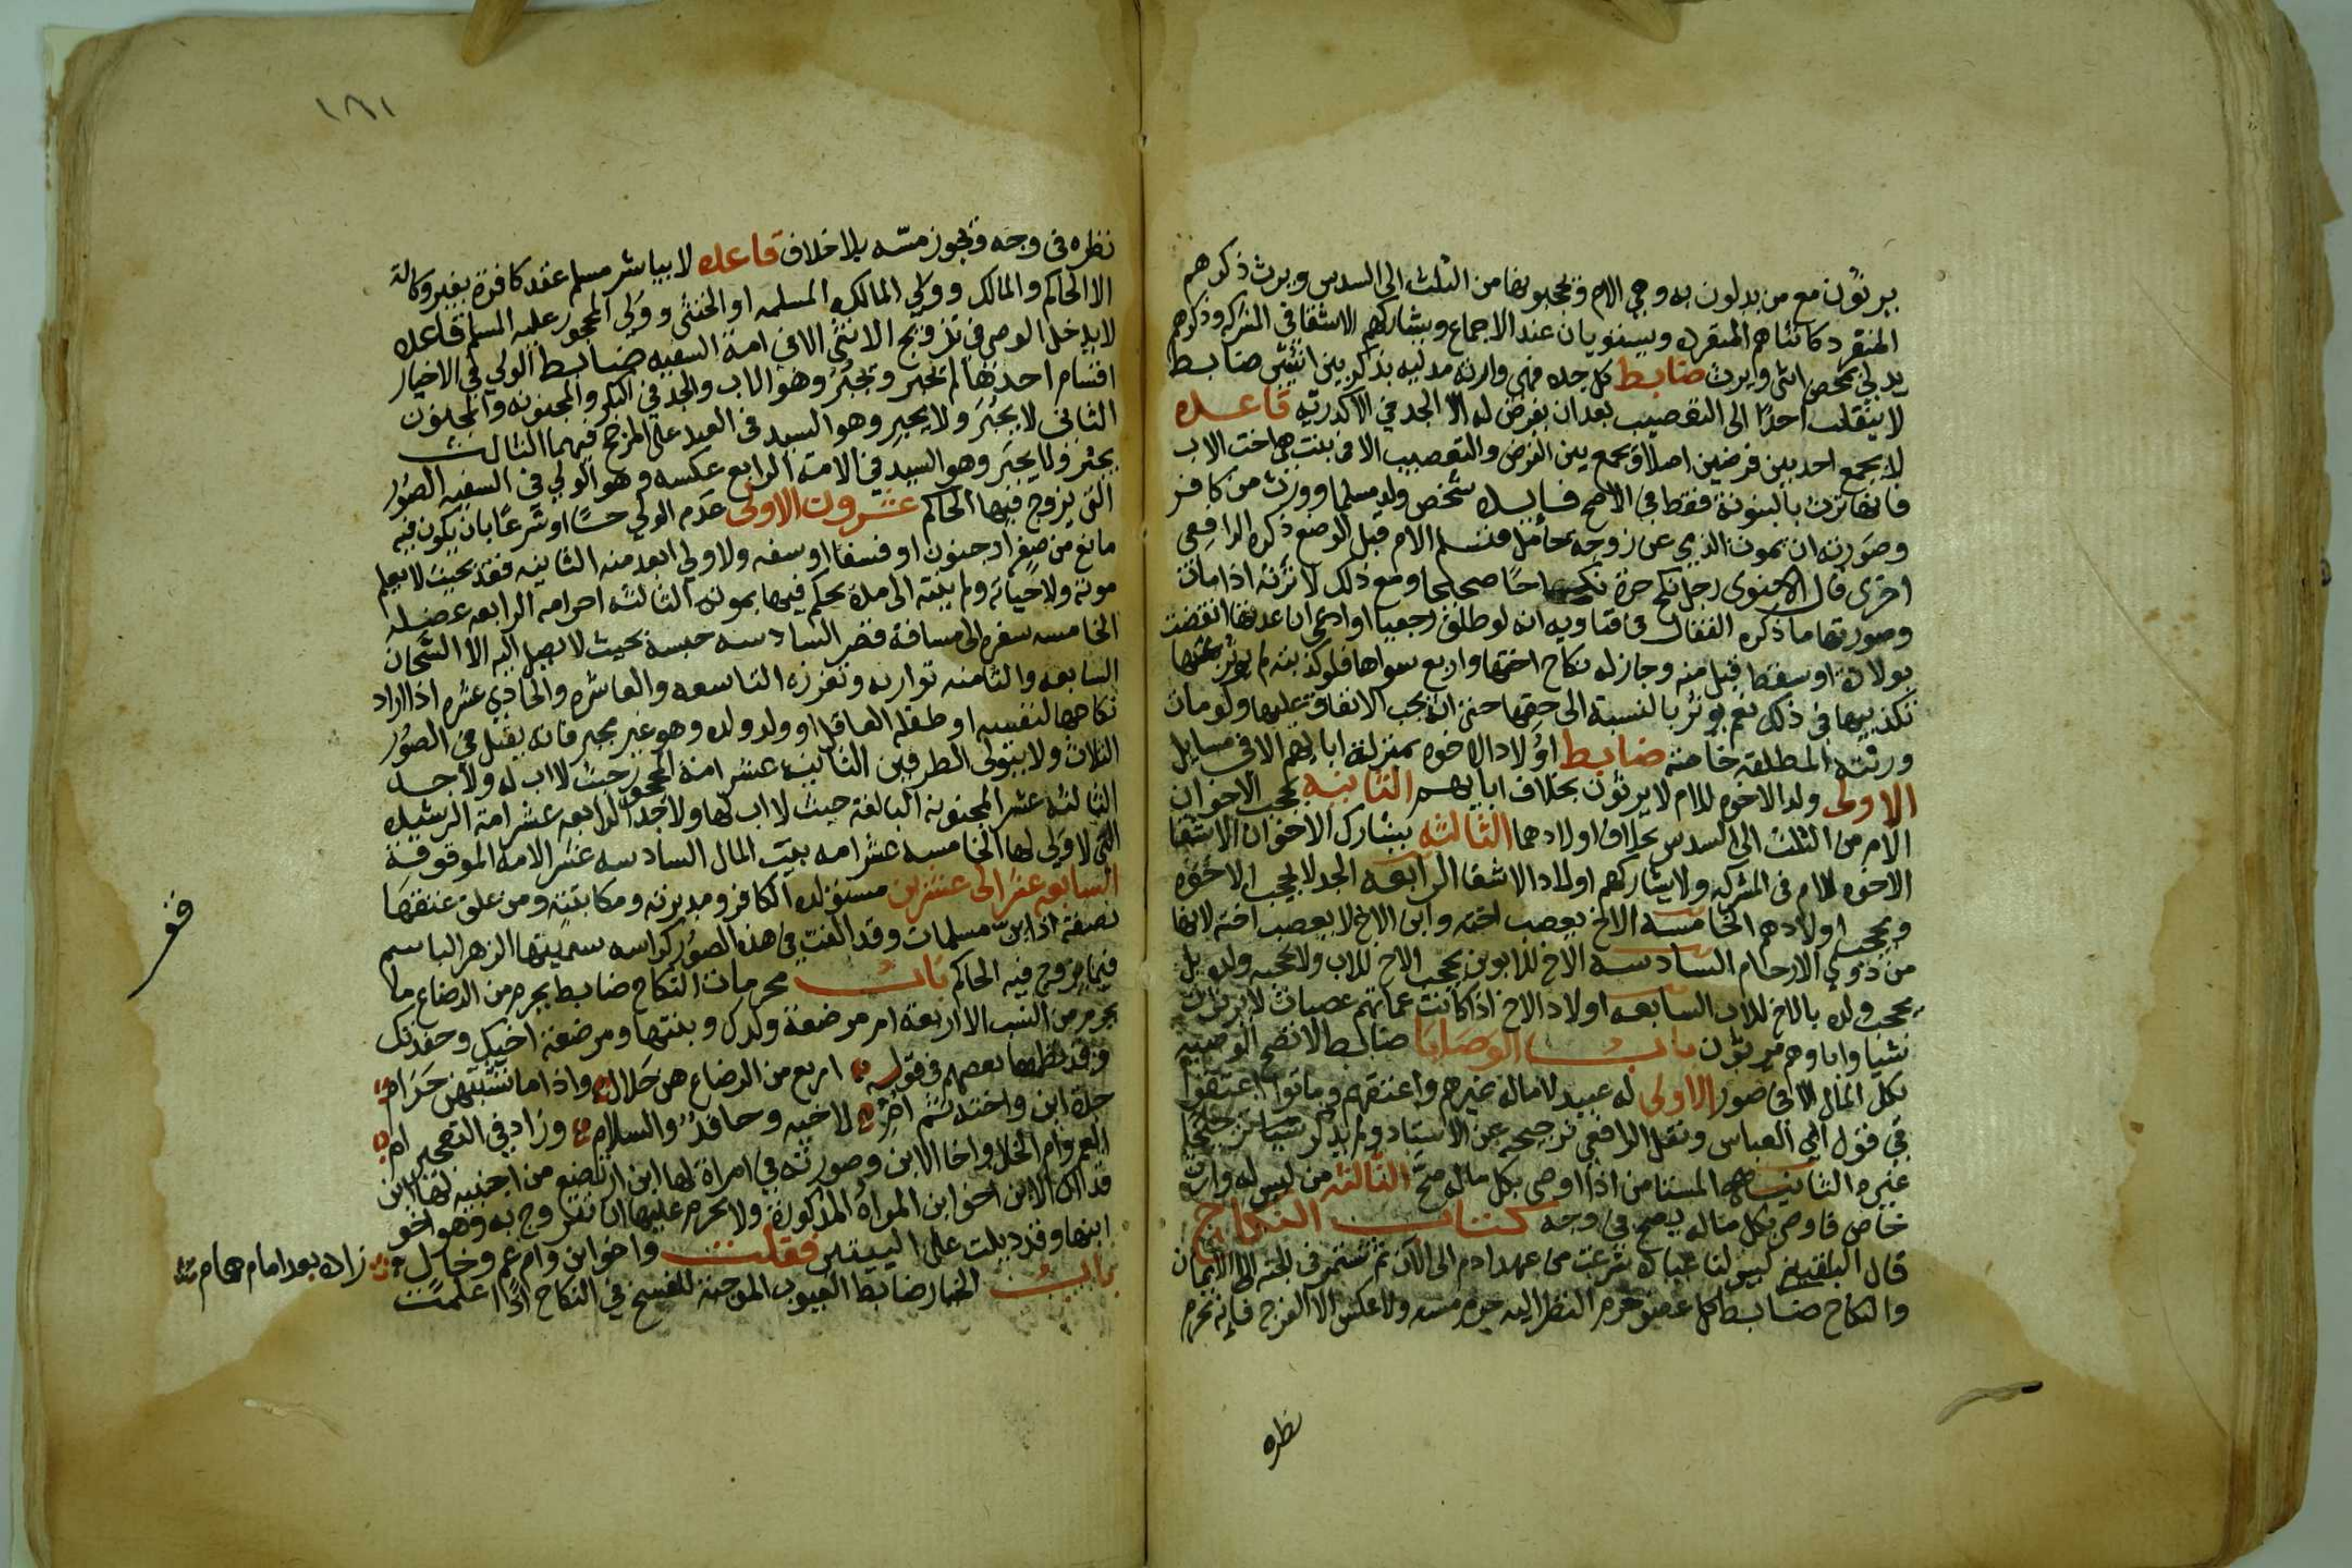 يرثون مع من يدلون به وهي الام ويحجبونها من الثلث الى السدس ويرث ذكرهم
المنفرد كانثاهم المنفرده ويستويان عند الاجماع ويشاركهم الاشقا في المشركه وذكرهم
يدلي بمحض انثى ويرث ضابط كل جده فهي وارثه الا مدليه بذكر بين انثيين ضابط
لا ينقلب احدًا الى التعصيب بعد ان يفرض له الا الجد في الاكدريه قاعده
لا يجمع احد بين فرضين اصلا ويجمع بين الفرض والتعصيب الا في بنت هي اخت لاب
فانها ترث بالبنوة فقط في الاصح فايده شخص ولد مسلما وورث من كافر
وصورته ان يموت الذمي عن زوجه حامل فتسلم الام قبل الوضع ذكره الرافعي
اخرى قال الاسنوى رجل نكح حرة نكاحا صحيحا ومع ذلك لا ترثه اذا مات
وصورتها ما ذكره القفال في فتاويه انه لو طلق رجعيا وادعى ان عدتها انقضت
بولادة او سقط قبل منه وجاز له نكاح اختها واربع سواها فلو كذبته لم يوثر
تكذيبها في ذلك نعم يوثر بالنسبة الى حقها حتى انه يجب الانفاق عليها ولو مات
ورثته المطلقه خامنه ضابط اولاد الاخوه بمنزلة ابايهم الا في مسايل
الاولى ولد الاخوه للام لا يرثون بخلاف ابايهم الثانيه يحجب الاخوان
الام من الثلث الى السدس بخلاف اولادهما الثالثه يشارك الاخوان الاشقا
الاخوه للام في المشركه ولا يشاركهم اولاد الاشقا الرابعه الجد لا يحجب الاخوه
ويحجب اولادهم الخامسه الاخ يعصب اخته وابن الاخ لا يعصب اخته لانها
من ذوي الارحام السادسه الاخ للابوين يحجب الاخ للاب ولا يحجبه ولده بل
يحجب ولده بالاخ للاب السابعه اولاد الاخ اذا كانت عماتهم عصبات لا يرثون
شيا واباوهم يرثون باب الوصايا ضابط لا تصح الوصيه
بكل المال الا في صور الاولى له عبيد لا مال له غيرهم واعتقهم وماتوا اعتقوا
في قول ابي العباس ونقل الرافعي ترجيحه عن الاستاد ولم يذكر ترجيحا
غيره الثانيه المستامن اذا اوصى بكل ماله صح الثالثه من ليس له وارث
خاص فاوصى بكل ماله يصح في وجه كتاب النكاح
قال البلقيني ليس لنا عباده شرعت من عهد ادم الى الآن ثم تستمر في الجنه الا الايمان
والنكاح ضابط كل عضو حرم النظر اليه حرم مسه ولا عكس الا الفرج فانه يحرم
نظره
١٨١
نظره في وجه ويجوز مسه بلا خلاف قاعده لا يباشر مسلم عقد كافرة بغير وكالة
الا الحاكم والمالك وولي المالك المسلمه او الخنثى وولي المحجور عليه المسلم قاعده
لا يدخل الوصي في تزويج الانثى الا في امة السفيه ضابط الولي في الاخيار
اقسام احدها لم يجبر ويجبر وهو الاب والجد في البكر والمجنونه والمجنون
الثاني لا يجبَر ولا يجبر وهو السيد في العبد على المرجح فيهما الثالث
يجبر ولا يجبَر وهو السيد في الامة الرابع عكسه وهو الولي في السفيه الصور
التي يزوج فيها الحاكم عشرون الاولى عدم الولي حسًا او شرعًا بان يكون فيه
مانع من صغر او جنون او فسق او سفه ولا ولي ابعد منه الثانيه فقده بحيث لا يعلم
موته ولا حياته ولم ينته الى مدة يحكم فيها بموته الثالثه احرامه الرابعه عضله
الخامسه سفره الى مسافة قصر السادسه حبسه بحيث لا يصل اليه الا السجان
السابعه والثامنه تواريه وتعززه التاسعه والعاشره والحادي عشره اذا اراد
نكاحها لنفسه او طفله العاقل او ولد ولده وهو غير مجبر فانه يقبل في الصور
الثلاث ولا يتولى الطرفين الثانيه عشر امة المحجور حيث لا اب له ولا جد
الثالثه عشر المجنونه البالغة حيث لا اب لها ولا جد الرابعه عشر امة الرشيده
التي لا ولي لها الخامسه عشر امه بيت المال السادسه عشر الامة الموقوفة
السابعه عشر الى عشرين مستولده الكافر ومدبرته ومكاتبته ومن علق عتقها
بصفة اذا كن مسلمات وقد الفت في هذه الصور كراسه سميتها الزهر الباسم
فيما يزوج فيه الحاكم باب محرمات النكاح ضابط يحرم من الرضاع ما
يحرم من النسب الا اربعة ام مرضعة ولدك وبنتها ومرضعة اخيك وحفدتك
وقد نظمها بعضهم في قوله اربع من الرضاع هن حلال واذا ما نسبتهن حرام
جدة ابن واخته ثم ام لاخيه وحافد والسلام وزاد في التصحيح ام
العم وام الخال واخا الابن وصورته في امراة لها ابن ارتضع من اجنبيه لها ابن
فذاك الابن اخو ابن المراة المذكورة ولا يحرم عليها ان تتزوج به وهو اخو
ابنها وقد ذيلت على البيتين فقلت واخو ابن وام عم وخال زاد بعد امام همام
باب الخيار ضابط العيوب الموجبة للفسخ في النكاح اذا علمت